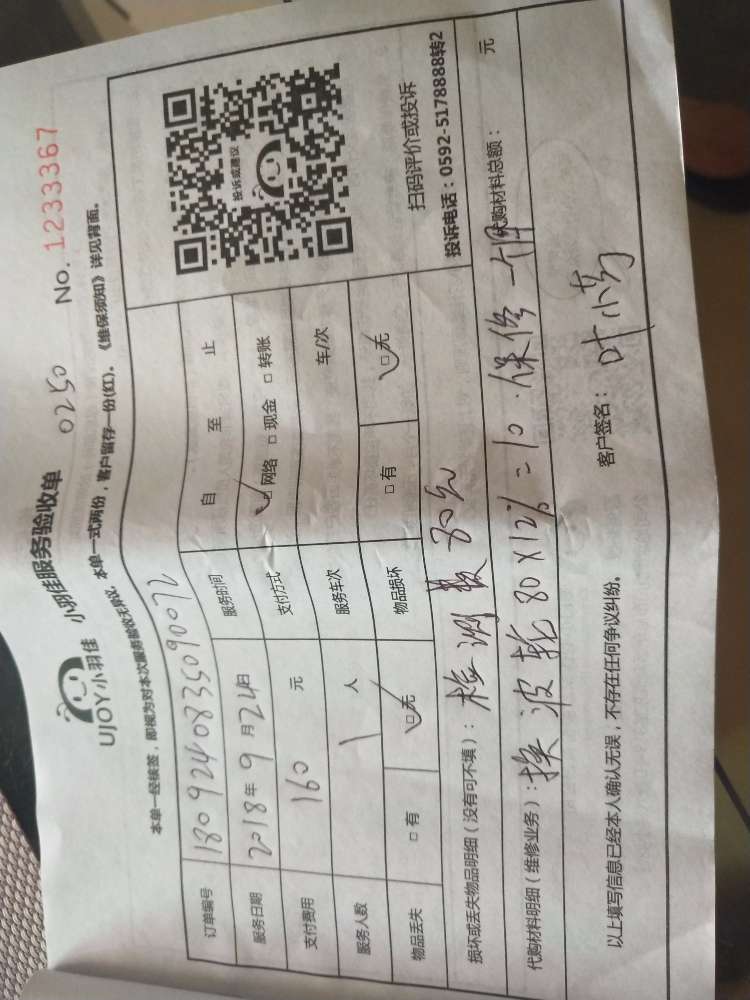 UJOY小羽佳 小羽佳服务验收单 0250 No. 1233367
本单一经核签，即视为对本次服务验收无异议，本单一式两份，客户留存一份(红)。《维保须知》详见背面。
订单编号 1809240835090072 服务时间 自 至 止
服务日期 2018年9月24日 支付方式 □网络 □现金 □转账
支付费用 160 元 服务车次 车/次
服务人数 1 人 物品损坏 □有 □无
物品丢失 □有 □无
投诉或建议
扫码评价或投诉
投诉电话：0592-5178888转2
损坏或丢失物品明细（没有可不填）：检测费80元
代购材料明细（维修业务）：换波轮80X12%=10.保修一个月 代购材料总额： 元
以上填写信息已经本人确认无误，不存在任何争议纠纷。 客户签名：叶小芳